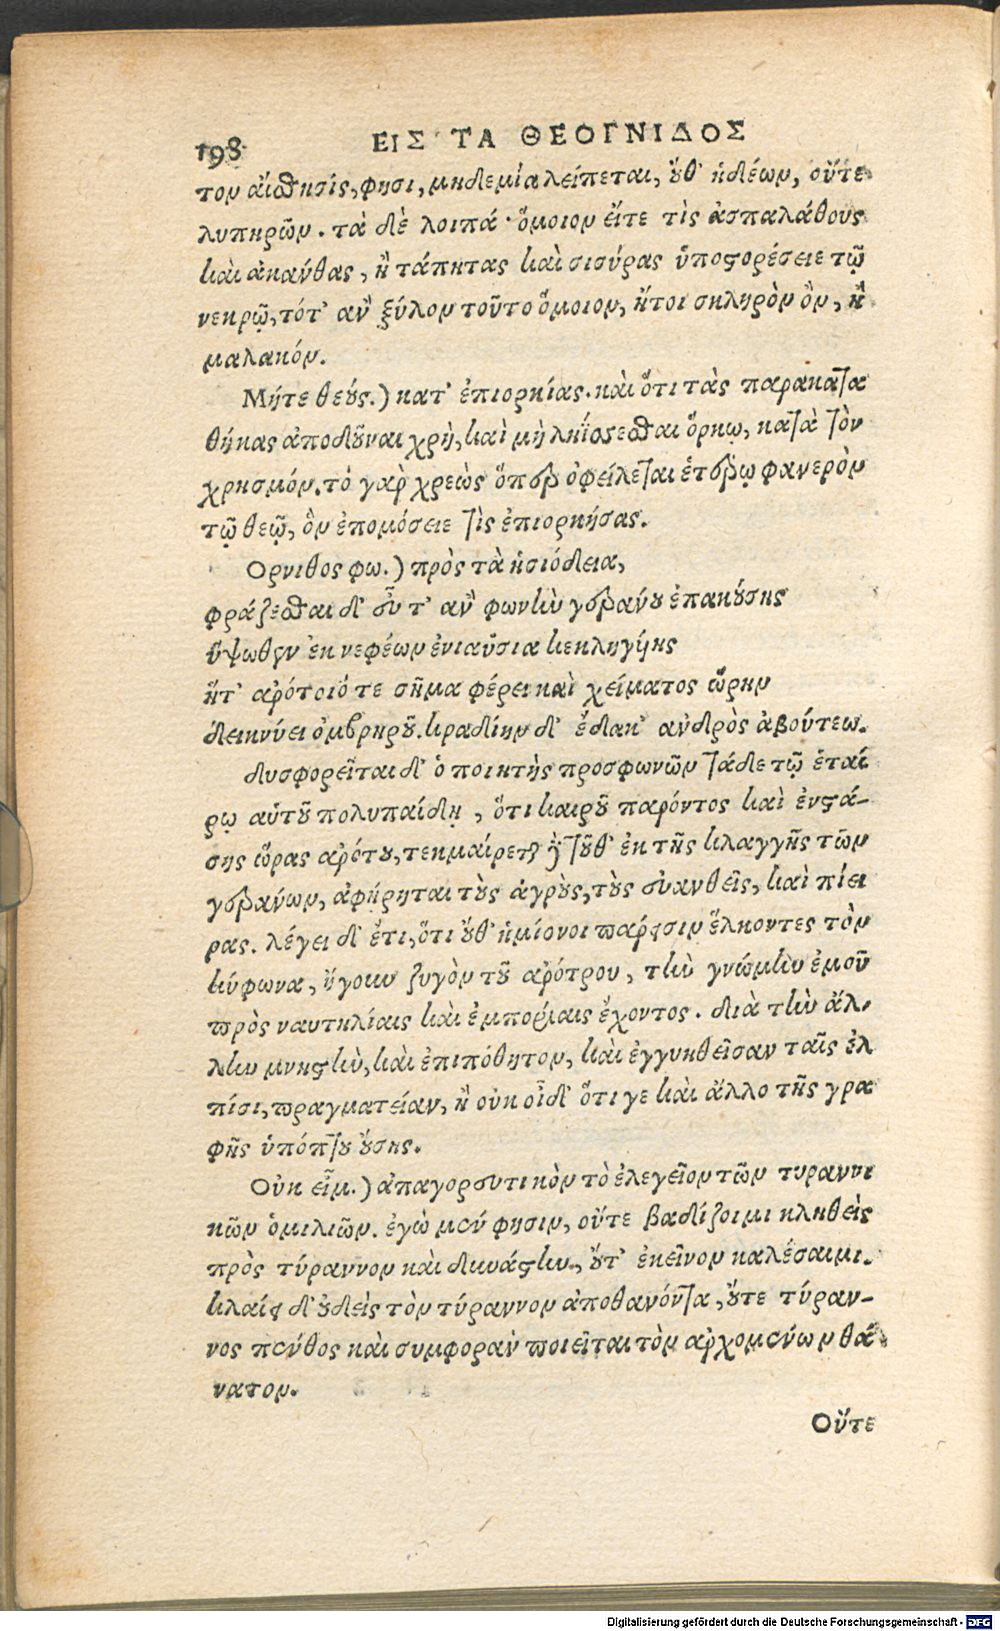 198 ΕΙΣ ΤΑ ΘΕΟΓΝΙΔΟΣ
τον αἴσθησίς, φησι, μηδεμία λείπεται, ὔθ' ἡδέων, οὔτε
λυπηρῶν. τὰ δὲ λοιπά· ὅμοιον εἴτε τὶς ἀσπαλάθους
καὶ ἀκάνθας, ἢ τάπητας καὶ σισύρας ὑποστορέσειε τῷ
νεκρῷ, τότ' ἂν ξύλον τοῦτο ὅμοιον, ἤτοι σκληρὸν ὂν, ἢ
μαλακόν.
Μήτε θεούς.) κατ' ἐπιορκίας. καὶ ὅτι τὰς παρακατα
θήκας ἀποδοῦναι χρὴ, καὶ μὴ ὅρκῳ, κατὰ τὸν
χρησμόν. τὸ γὰρ χρεὼς ὅπερ ὀφείλεται ἑτέρῳ φανερὸν
τῷ θεῷ, ὃν ἐπομόσειε τὶς ἐπιορκήσας.
Ορνιθος φω.) πρὸς τὰ ἡσιόδεια,
φράζεσθαι δ' εὖ τ' ἂν φωνὴν γεράνου ἐπακούσῃς
ὕψωθεν ἐκ νεφέων ἐνιαύσια κεκληγύης
ἥτ' ἀρότοιό τε σῆμα φέρει καὶ χείματος ὥρην
δεικνύει ὀμβρηροῦ. κραδίην δ' ἔδακ' ἀνδρὸς ἀβούτεω.
δυσφορεῖται δ' ὁ ποιητὴς προσφωνῶν τάδε τῷ ἑταί
ρῳ αὐτοῦ πολυπαίδῃ, ὅτι καιροῦ παρόντος καὶ ἐνστά-
σης ὥρας ἀρότου, τεκμαίρεται γὰρ τοῦθ' ἐκ τῆς κλαγγῆς τῶν
γεράνων, ἀφῄρηται τοὺς ἀγροὺς, τοὺς εὐανθεῖς, καὶ πίει
ρας. λέγει δ' ἔτι, ὅτι οὔθ' ἡμίονοι πάρεισιν ἕλκοντες τὸν
κύφωνα, ἤγουν ζυγὸν τοῦ ἀρότρου, τὴν γνώμην ἐμοῦ
πρὸς ναυτηλίαις καὶ ἐμπορίαις ἔχοντος. διὰ τὴν ἄλ-
λην μνηστὴν, καὶ ἐπιπόθητον, καὶ ἐγγυηθεῖσαν ταῖς ἐλ
πίσι, πραγματείαν, ἢ οὐκ οἶδ' ὅτι γε καὶ ἄλλο τῆς γρα
φῆς ὑπόπτου οὔσης.
Οὐκ εἶμ.) ἀπαγορευτικὸν τὸ ἐλεγεῖον τῶν τυραννι
κῶν ὁμιλιῶν. ἐγὼ μέν φησιν, οὔτε βαδίζοιμι κληθεὶς
πρὸς τύραννον καὶ δυνάστην, οὔτ' ἐκεῖνον καλέσαιμι.
κλαίει δ' οὐδεὶς τὸν τύραννον ἀποθανόντα, οὔτε τύραν-
νος πένθος καὶ συμφορὰν ποιεῖται τὸν ἀρχομένων θά
νατον.
Οὔτε
Digitalisierung gefördert durch die Deutsche Forschungsgemeinschaft - DFG